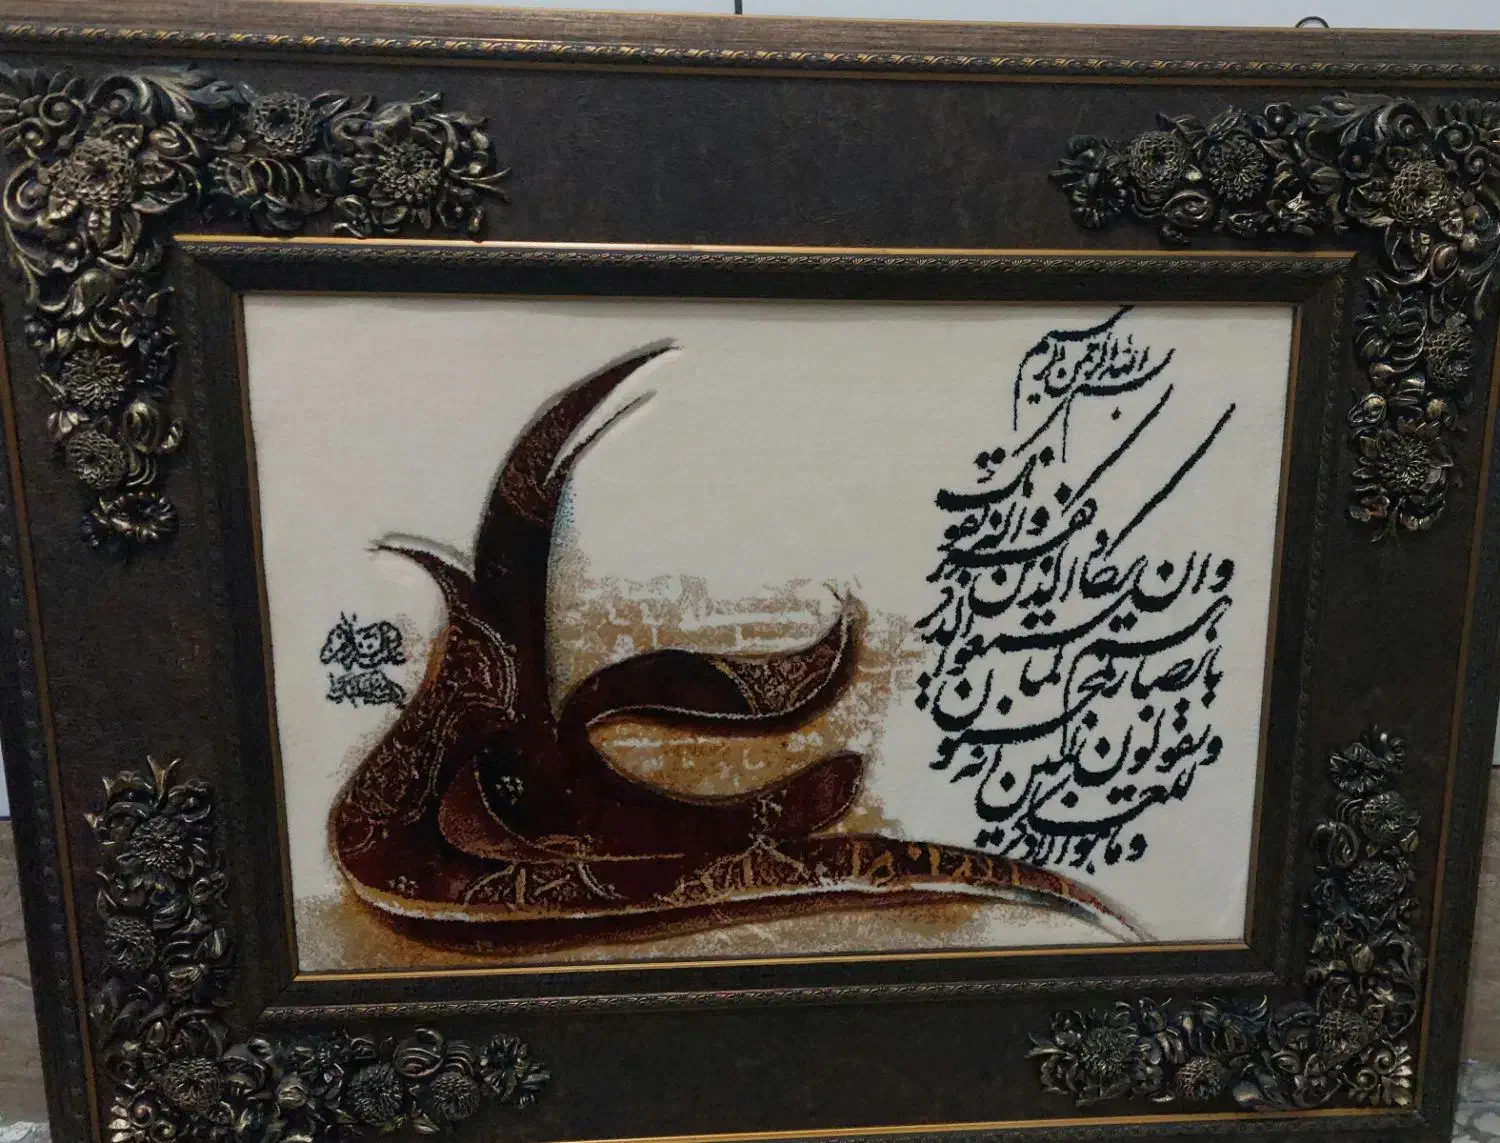 بسم الله الرحمن الرحیم
وان یکاد الذین کفروا لیزلقونک
بابصارهم لما سمعوا الذکر
ویقولون انه لمجنون
وما هو الا ذکر للعالمین
علی